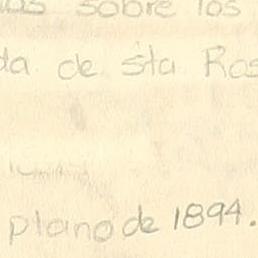 sobre los
da de sta Ros
plano de 1894.